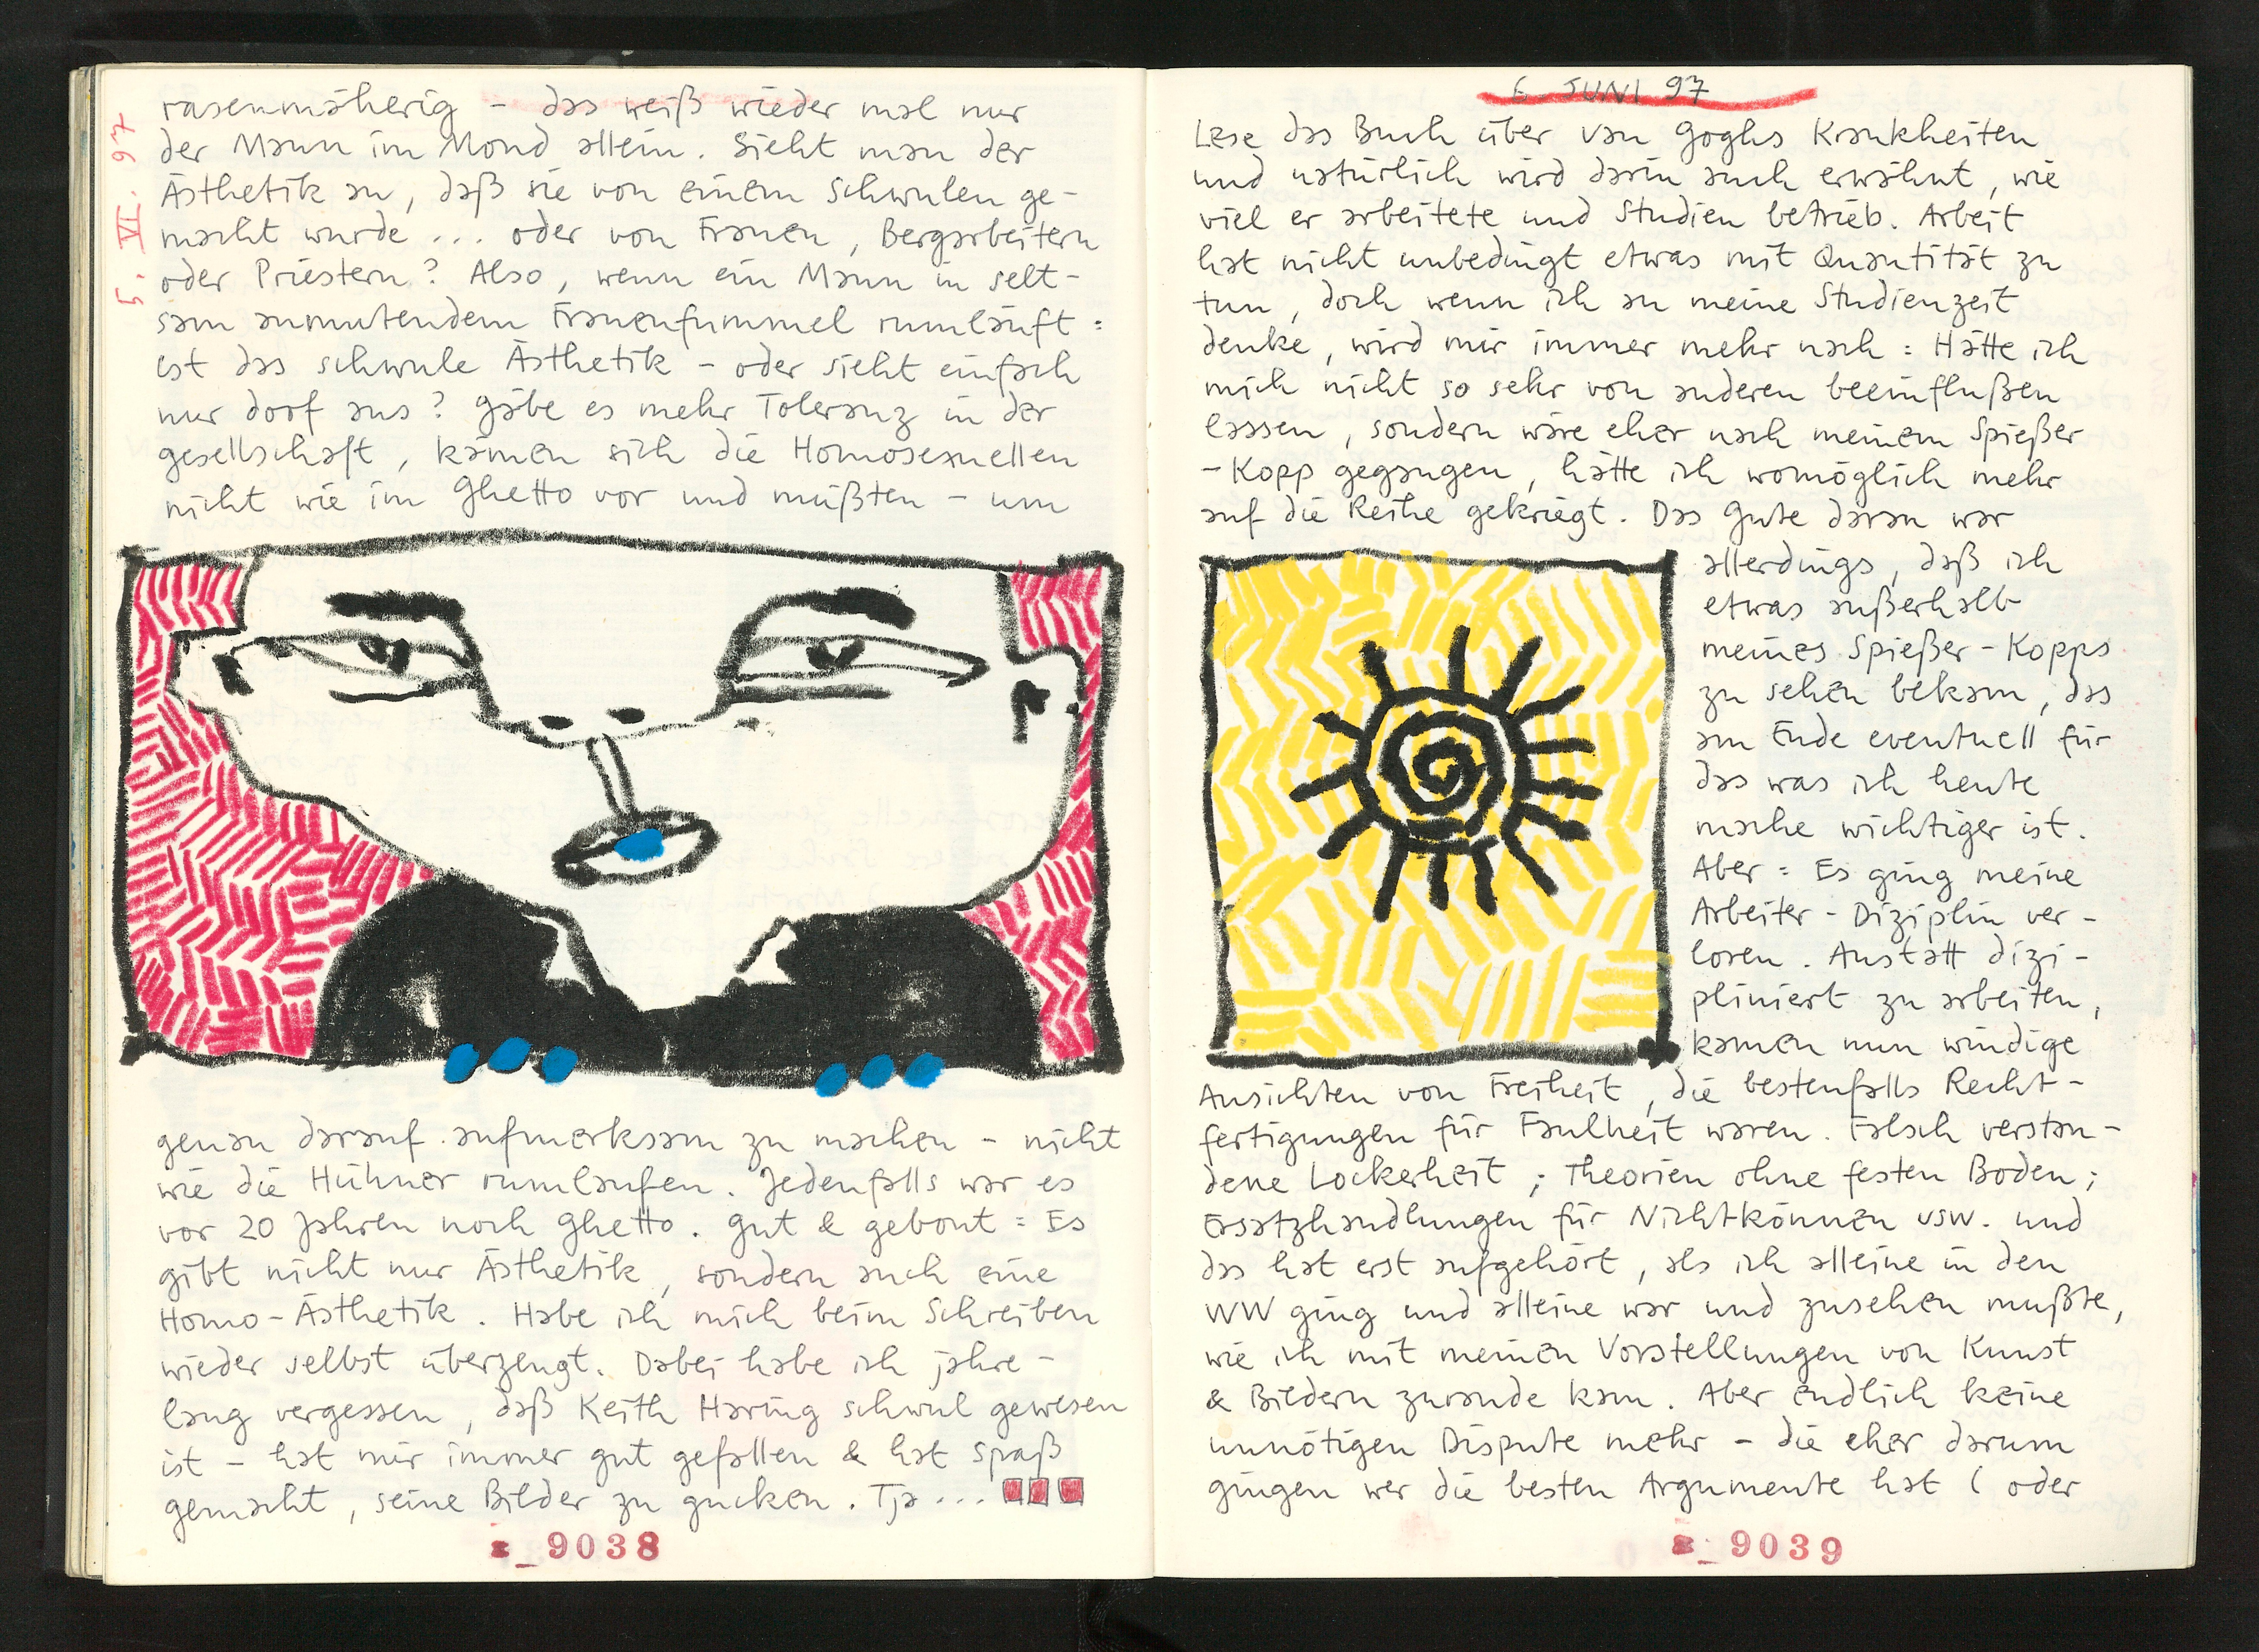 5. VI. 97
rasenmäherig – das weiß wieder mal nur
der Mann im Mond allein. Sieht man der
Ästhetik an, daß sie von einem Schwulen ge-
macht wurde ... oder von Frauen, Bergarbeitern
oder Priestern? Also, wenn ein Mann in selt-
sam anmutendem Frauenfummel rumläuft:
ist das schwule Ästhetik – oder sieht einfach
nur doof aus? Gäbe es mehr Toleranz in der
Gesellschaft, kämen sich die Homosexuellen
nicht wie im Ghetto vor und müßten – um
genau darauf aufmerksam zu machen – nicht
wie die Hühner rumlaufen. Jedenfalls war es
vor 20 Jahren noch Ghetto. Gut & gebont: Es
gibt nicht nur Ästhetik, sondern auch eine
Homo-Ästhetik. Habe ich mich beim Schreiben
wieder selbst überzeugt. Dabei habe ich jahre-
lang vergessen, daß Keith Haring schwul gewesen
ist – hat mir immer gut gefallen & hat Spaß
gemacht, seine Bilder zu gucken. Tja ...
9038
6. JUNI 97
Lese das Buch über van Goghs Krankheiten
und natürlich wird darin auch erwähnt, wie
viel er arbeitete und Studien betrieb. Arbeit
hat nicht unbedingt etwas mit Quantität zu
tun, doch wenn ich an meine Studienzeit
denke, wird mir immer mehr nach: Hätte ich
mich nicht so sehr von anderen beeinflußen
lassen, sondern wäre eher nach meinem Spießer
-Kopp gegangen, hätte ich womöglich mehr
auf die Reihe gekriegt. Das Gute daran war
allerdings, daß ich
etwas außerhalb
meines Spießer-Kopps
zu sehen bekam, das
am Ende eventuell für
das was ich heute
mache wichtiger ist.
Aber: Es ging meine
Arbeiter-Diziplin ver-
loren. Anstatt dizi-
pliniert zu arbeiten,
kamen nun windige
Ansichten von Freiheit, die bestenfalls Recht-
fertigungen für Faulheit waren. Falsch verstan-
dene Lockerheit; Theorien ohne festen Boden;
Ersatzhandlungen für Nichtkönnen usw. und
das hat erst aufgehört, als ich alleine in den
WW ging und alleine war und zusehen mußte,
wie ich mit meinen Vorstellungen von Kunst
& Bildern zurande kam. Aber endlich keine
unnötigen Dispute mehr – die eher darum
gingen wer die besten Argumente hat (oder
9039